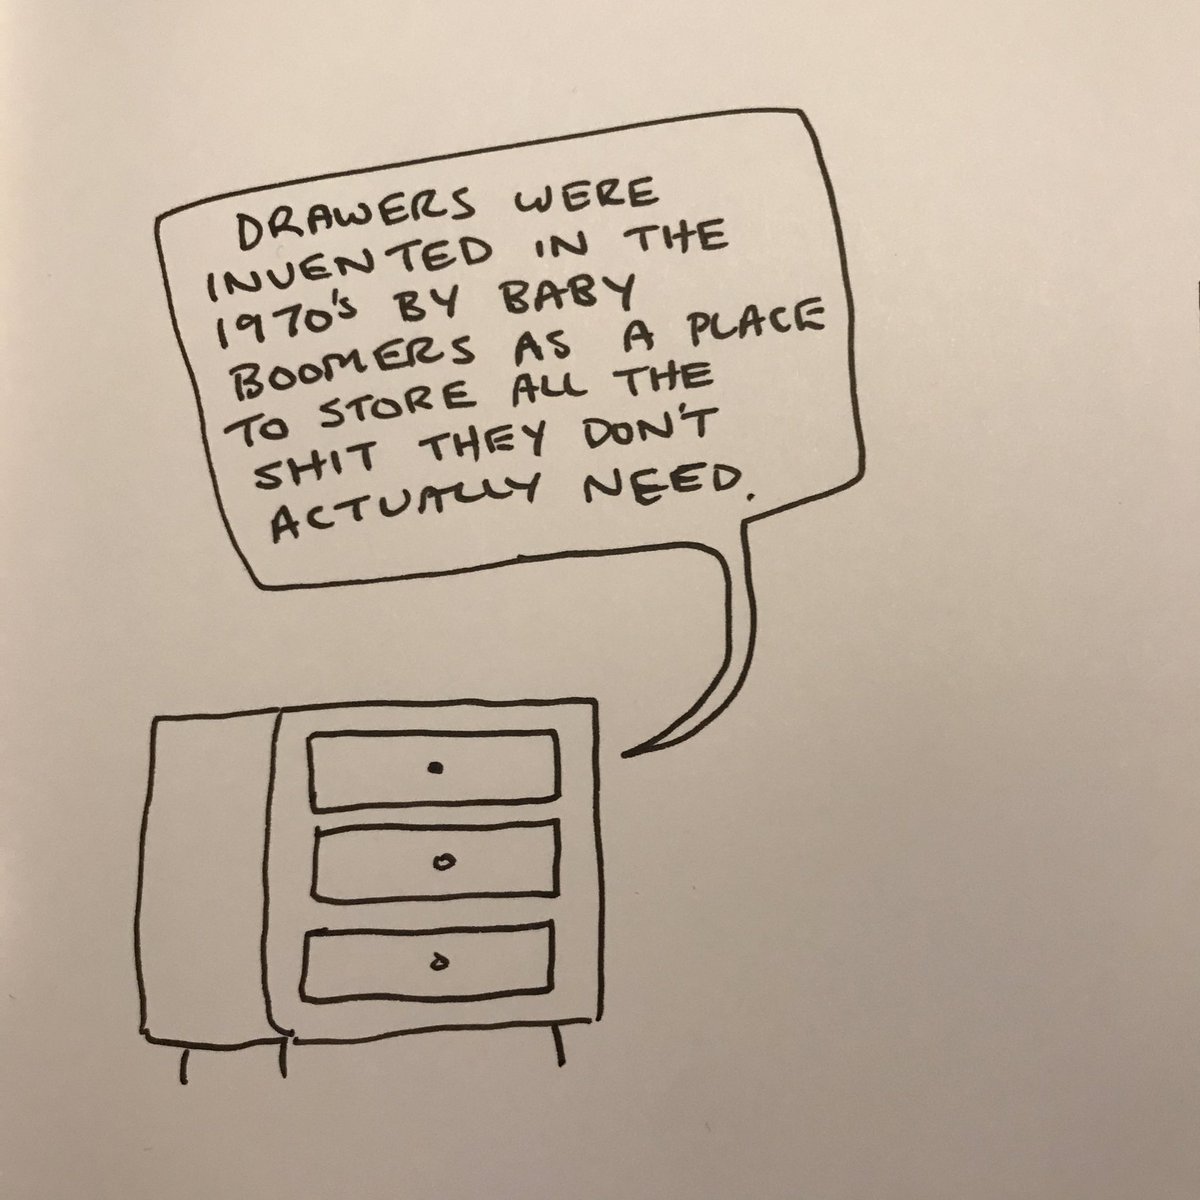 DRAWERS WERE
INVENTED IN THE
1970's BY BABY
BOOMERS AS A PLACE
TO STORE ALL THE
SHIT THEY DON'T
ACTUALLY NEED.